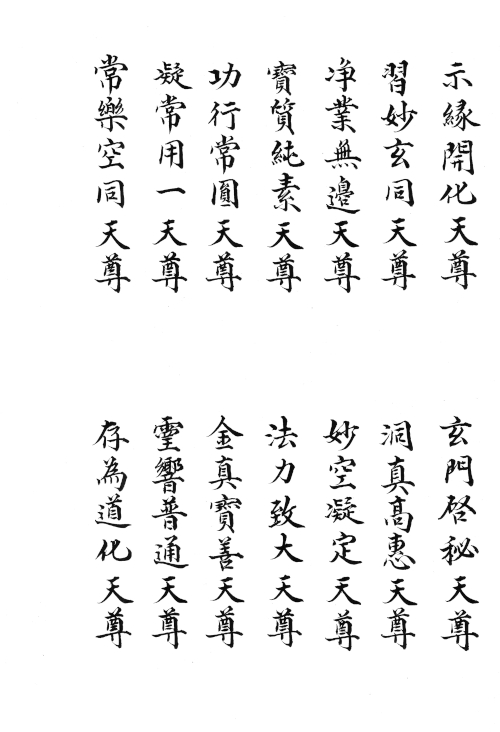 示緣開化天尊
習妙玄同天尊
净業無邊天尊
寶質純素天尊
功行常圓天尊
凝常用一天尊
常樂空同天尊
玄門啓秘天尊
洞真高惠天尊
妙空凝定天尊
法力致大天尊
金真寶善天尊
靈響普通天尊
存為道化天尊